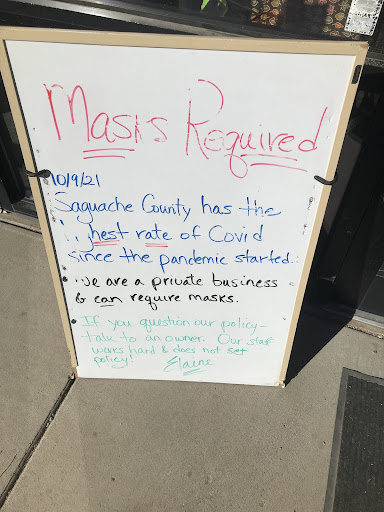 Masks Required
10/9/21
Saguache County has the
highest rate of Covid
since the pandemic started.
We are a private business
& can require masks.
If you question our policy-
talk to an owner. Our staff
works hard & does not set
policy!
Elaine